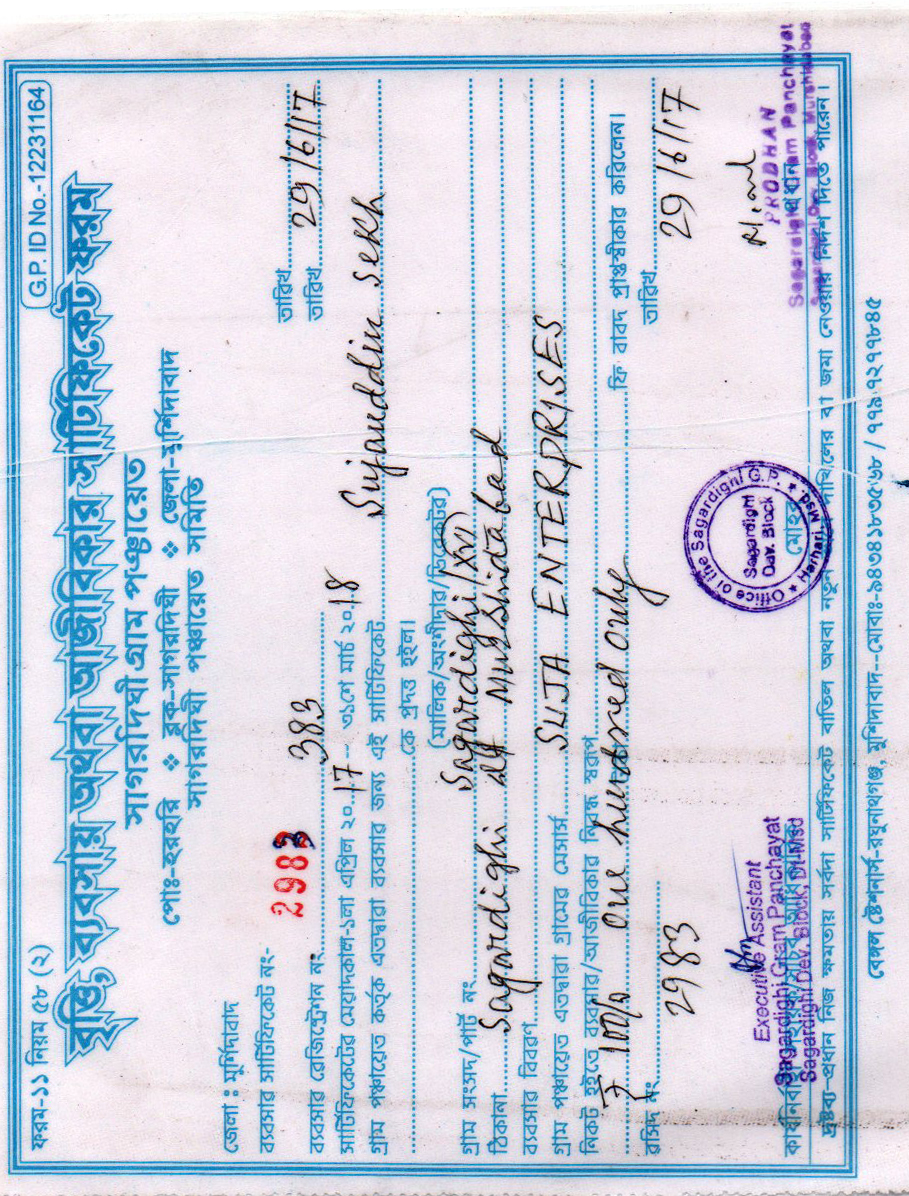 ফরম-১১ নিয়ম ৫৮ (২)
G.P. ID No.-12231164
বৃত্তি, ব্যবসায় অথবা আজীবিকার সার্টিফিকেট ফরম
সাগরদিঘী গ্রাম পঞ্চায়েত
পোঃ-হরহরি ❖ ব্লক-সাগরদিঘী ❖ জেলা-মুর্শিদাবাদ
সাগরদিঘী পঞ্চায়েত সমিতি
জেলা : মুর্শিদাবাদ
ব্যবসার সার্টিফিকেট নং- 2983 তারিখ
ব্যবসার রেজিস্ট্রেশন নং 383 তারিখ 29/6/17
সার্টিফিকেটের মেয়াদকাল-১লা এপ্রিল ২০ 17 - ৩১শে মার্চ ২০ 18
গ্রাম পঞ্চায়েত কর্তৃক এতদ্বারা ব্যবসার জন্য এই সার্টিফিকেট Sujauddin Sekh
কে প্রদত্ত হইল।
(মালিক/অংশীদার/ডিরেক্টর)
গ্রাম সংসদ/পার্ট নং Sagardighi/XVI
ঠিকানা Sagardighi Murshidabad
ব্যবসার বিবরণ
গ্রাম পঞ্চায়েত এতদ্বারা গ্রামের মেসার্স SUJA ENTERPRISES
নিকট হইতে ব্যবসার/আজীবিকার নিবন্ধ স্বরূপ
100/- One hundred only ফি বাবদ প্রাপ্তস্বীকার করিলেন।
রসিদ নং 2983 তারিখ 29/6/17
Executive Assistant
Sagardighi Gram Panchayat
Sagardighi Dev. Block, Dt-Msd
Office of the Sagardighi G.P.
Sagardighi
Dev. Block
Harhari, Msd.
মোহর
PRODHAN
প্রধান
Sagardighi Gram Panchayat
Sagardighi Dev. Block, Murshidabad
দ্রষ্টব্য-প্রধান নিজ ক্ষমতায় সর্বদা সার্টিফিকেট বাতিল অথবা নতুন দাখিলের বা জমা নেওয়ার নির্দেশ দিতে পারেন।
বেঙ্গল ষ্টেশনার্স-রঘুনাথগঞ্জ, মুর্শিদাবাদ--মোবাঃ-৯৪৩৪১৮৩৫৬৮ / ৭৭৯৭২৭৭৮৪৫